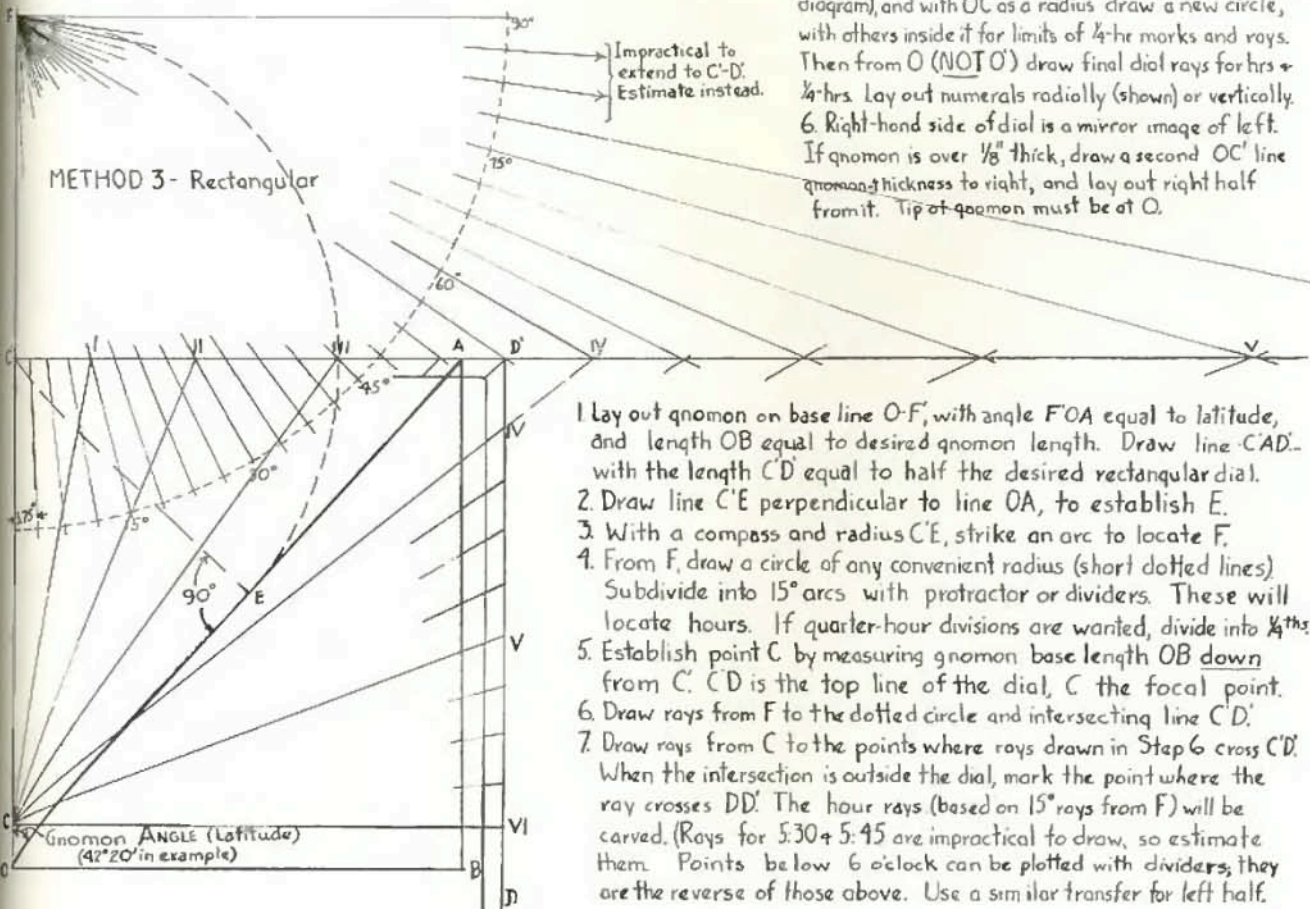 F
90°
Impractical to
extend to C'-D'.
Estimate instead.
diagram), and with OC as a radius draw a new circle,
with others inside it for limits of ¼-hr marks and rays.
Then from O (NOT O') draw final dial rays for hrs +
¼-hrs. Lay out numerals radially (shown) or vertically.
6. Right-hand side of dial is a mirror image of left.
If gnomon is over ⅛" thick, draw a second OC' line
gnomon-thickness to right, and lay out right half
from it. Tip of gnomon must be at O.
METHOD 3 - Rectangular
75°
60°
C' I II III A D' IV V
45°
30°
15°
IV
90° E
V
1. Lay out gnomon on base line O-F', with angle F'OA equal to latitude,
and length OB equal to desired gnomon length. Draw line C'AD'-
with the length C'D' equal to half the desired rectangular dial.
2. Draw line C'E perpendicular to line OA, to establish E.
3. With a compass and radius C'E, strike an arc to locate F.
4. From F, draw a circle of any convenient radius (short dotted lines)
Subdivide into 15° arcs with protractor or dividers. These will
locate hours. If quarter-hour divisions are wanted, divide into ¼ths
5. Establish point C by measuring gnomon base length OB down
from C'. CD is the top line of the dial, C the focal point.
6. Draw rays from F to the dotted circle and intersecting line C'D'.
7. Draw rays from C to the points where rays drawn in Step 6 cross C'D'.
When the intersection is outside the dial, mark the point where the
ray crosses DD'. The hour rays (based on 15° rays from F) will be
carved. (Rays for 5:30 + 5:45 are impractical to draw, so estimate
them Points below 6 o'clock can be plotted with dividers; they
are the reverse of those above. Use a similar transfer for left half.
C VI
Gnomon ANGLE (Latitude)
(42°20' in example)
O B
D